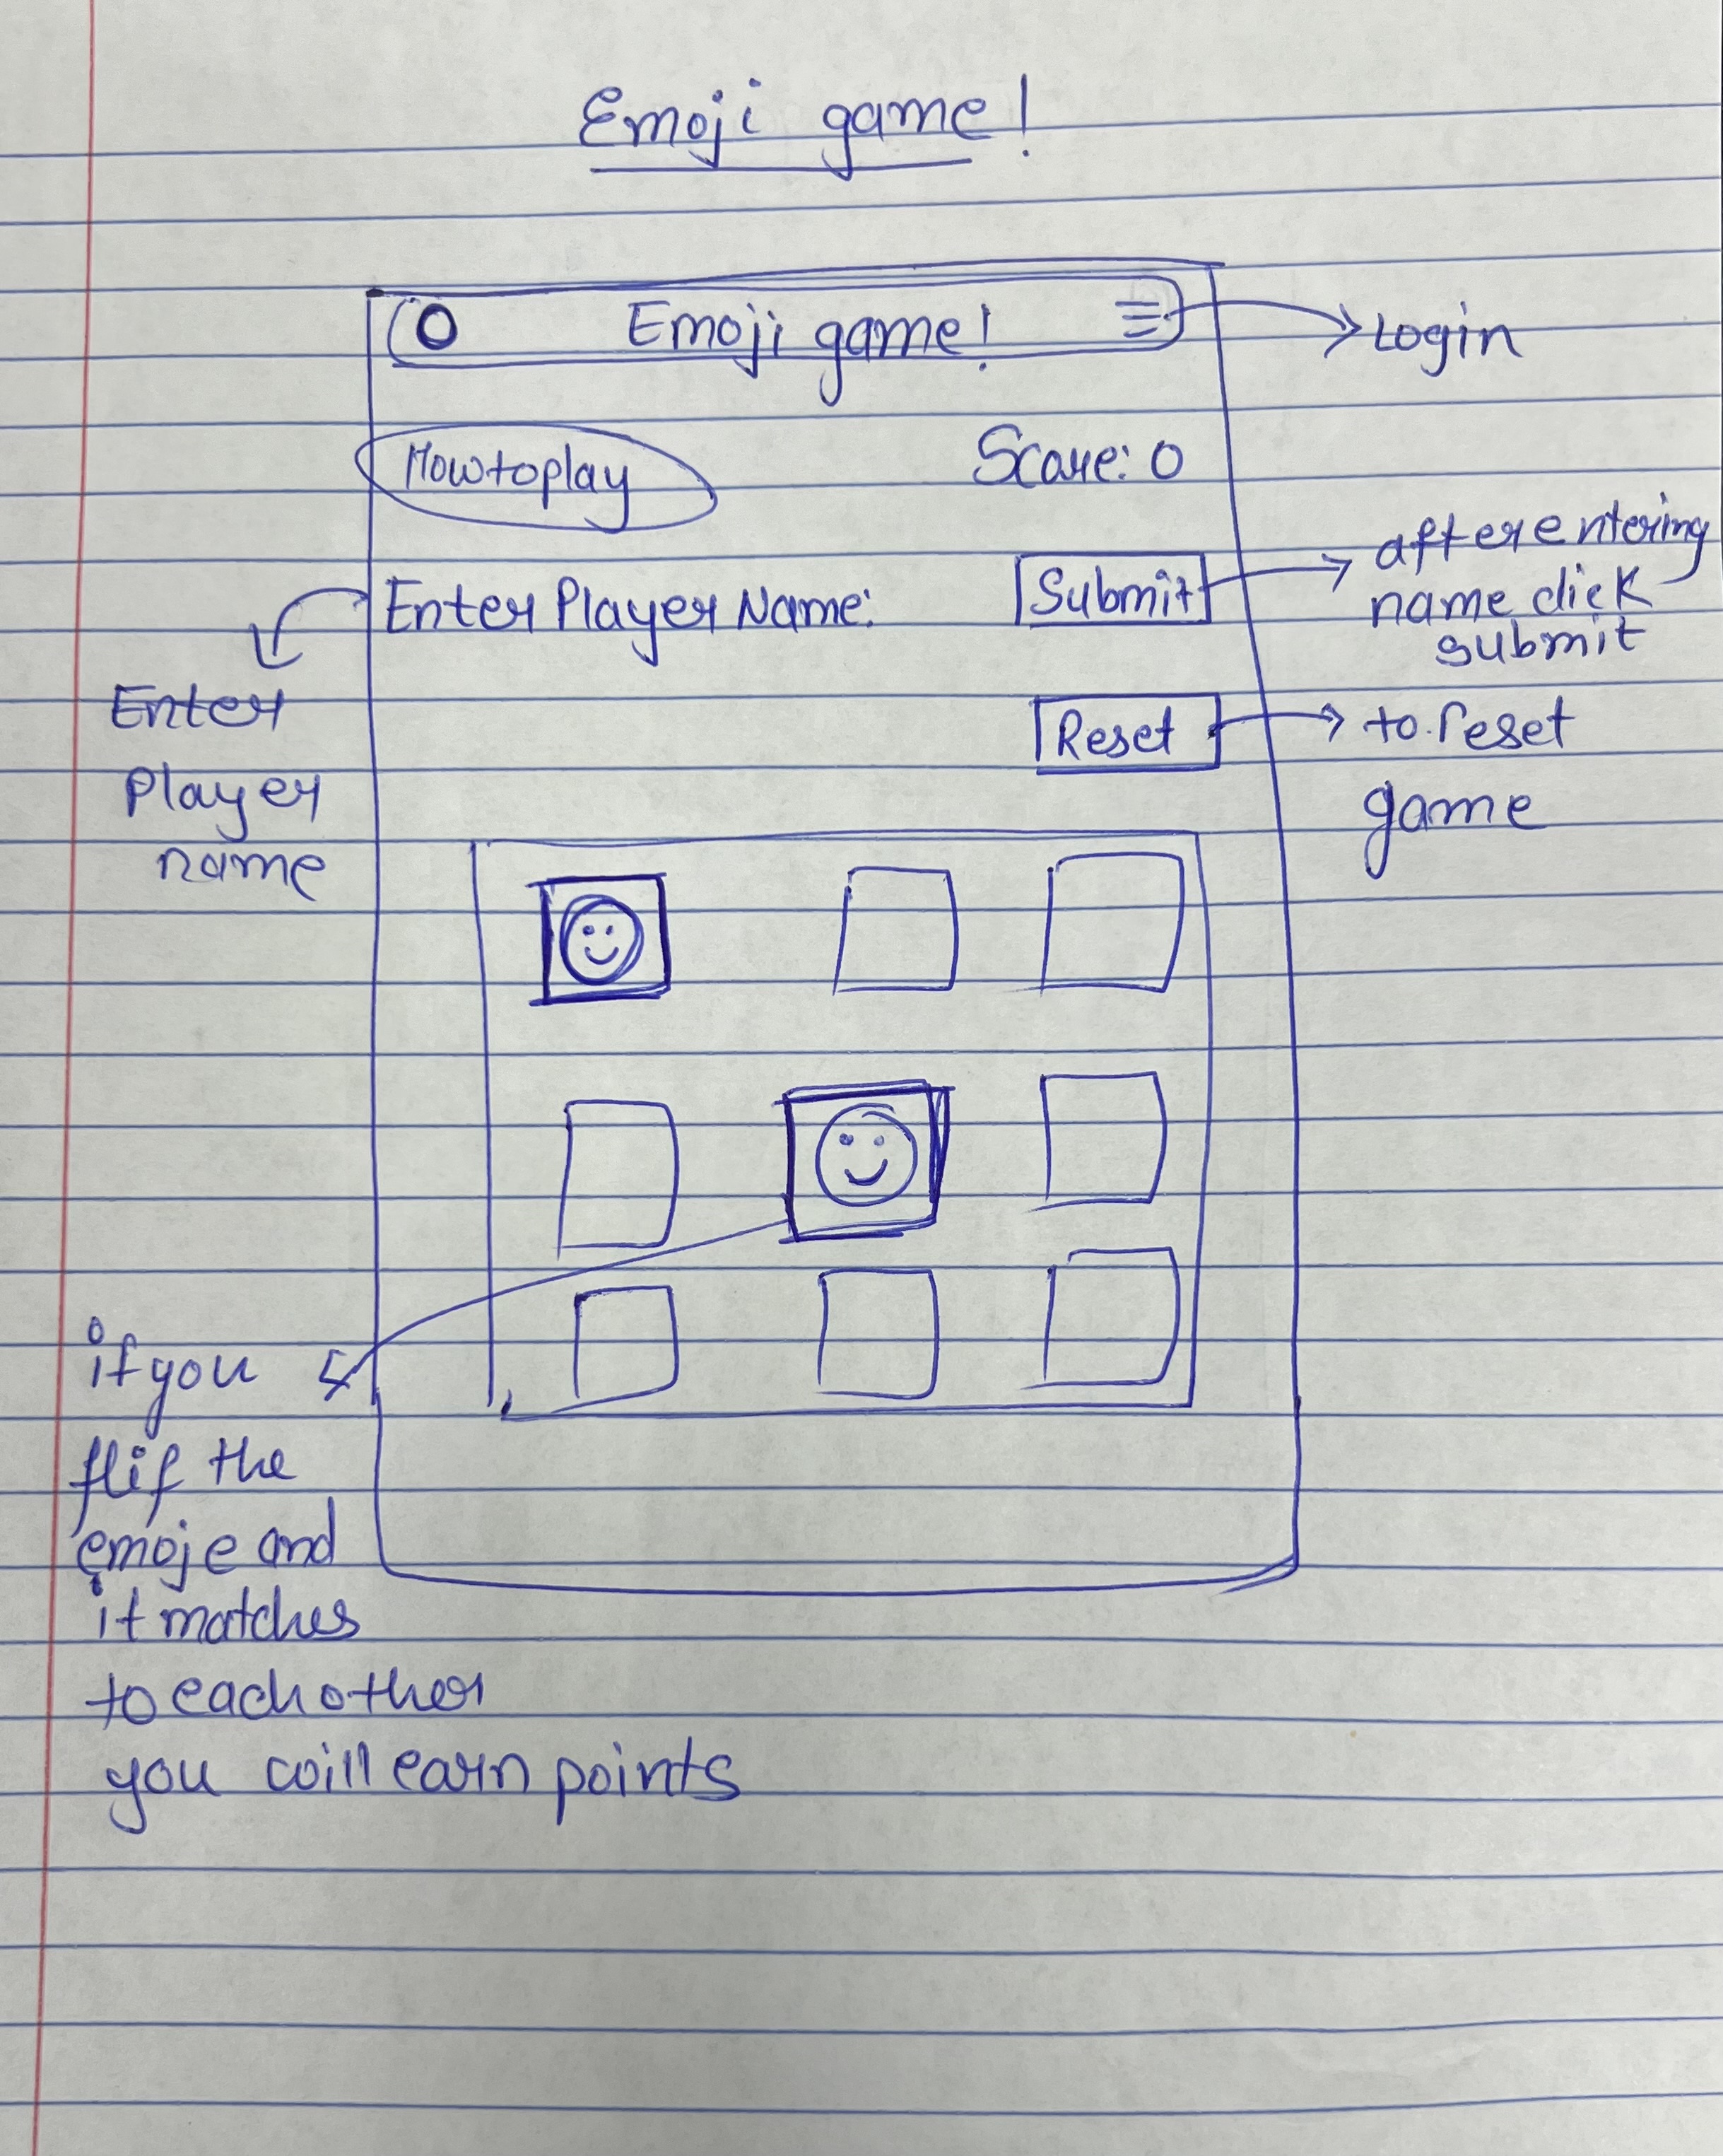 Emoji game!
O Emoji game!
Login
Howtoplay
Score: 0
Enter Player Name:
Submit
after entering
name click
submit
Enter
Player
name
Reset
to reset
game
if you
flif the
emoje and
it matches
to each other
you will earn points